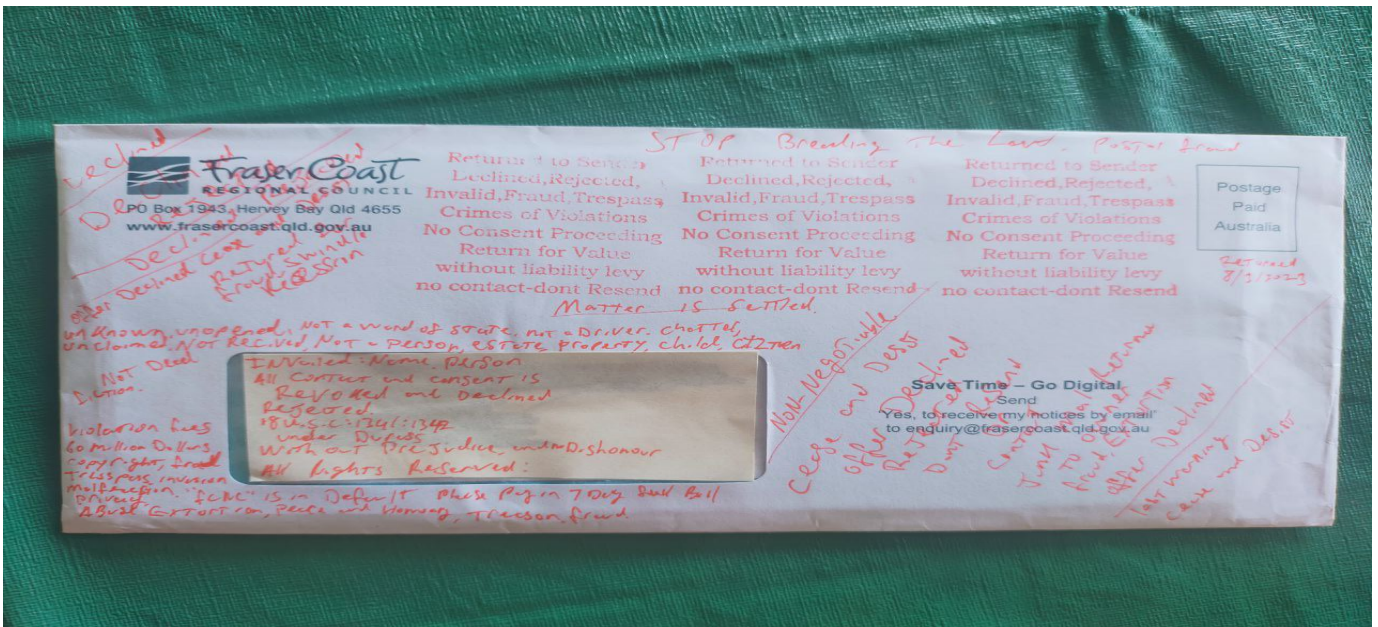 STOP Breaking The Law. Postal fraud
Declined
Fraser Coast
REGIONAL COUNCIL
PO Box 1943, Hervey Bay Qld 4655
www.frasercoast.qld.gov.au
Declined
offer Declined Cease and Desist
Returned
fraud, Swindle
Returned to Sender
Declined,Rejected,
Invalid,Fraud,Trespass
Crimes of Violations
No Consent Proceeding
Return for Value
without liability levy
no contact-dont Resend
Returned to Sender
Declined,Rejected,
Invalid,Fraud,Trespass
Crimes of Violations
No Consent Proceeding
Return for Value
without liability levy
no contact-dont Resend
Returned to Sender
Declined,Rejected,
Invalid,Fraud,Trespass
Crimes of Violations
No Consent Proceeding
Return for Value
without liability levy
no contact-dont Resend
Postage
Paid
Australia
Returned
8/3/2023
Matter is Settled.
unknown, unopened, Not a word of state, not a Driver. chattel,
unclaimed, Not Recived, Not a Person, estate, property, child, citzien
Not Dead
INVailed: Name, person
All Contact and consent is
Revoked and Declined
Rejected
18 U.S.C: 1341: 1342
under
With out Prejudice, and Dishonour
All Rights Reserved:
violation fees
60 million Dollars
copyright, fraud
Tresspass invasion
privacy. is in Default please Pay in 7 Day
Abuse Extortion, and Treason, fraud.
NON-Negotiable
Cease and Desist
offer Declined
Returned
Dont Resend
Contact
Junk mail Returned
To owner
fraud, Extortion
offer Declined
last warning
cause and Desist
Save Time – Go Digital
Send
'Yes, to receive my notices by email'
to enquiry@frasercoast.qld.gov.au